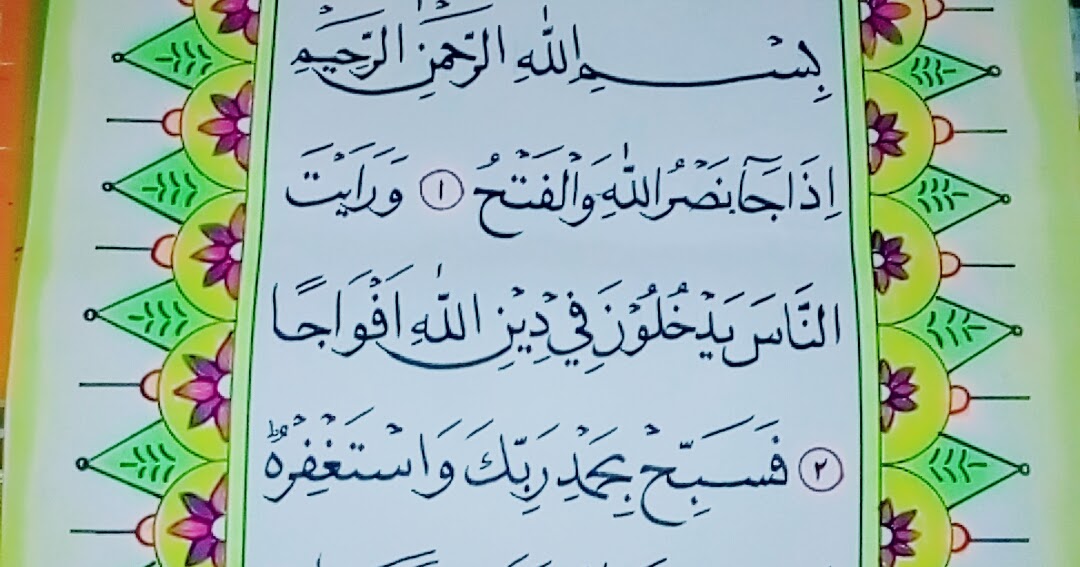 بِسْمِ اللّٰهِ الرَّحْمٰنِ الرَّحِيْمِ
اِذَا جَآءَ نَصْرُ اللّٰهِ وَالْفَتْحُ ۱ وَرَاَيْتَ
النَّاسَ يَدْخُلُوْنَ فِيْ دِيْنِ اللّٰهِ اَفْوَاجًا
۲ فَسَبِّحْ بِحَمْدِ رَبِّكَ وَاسْتَغْفِرْهُ ؕ